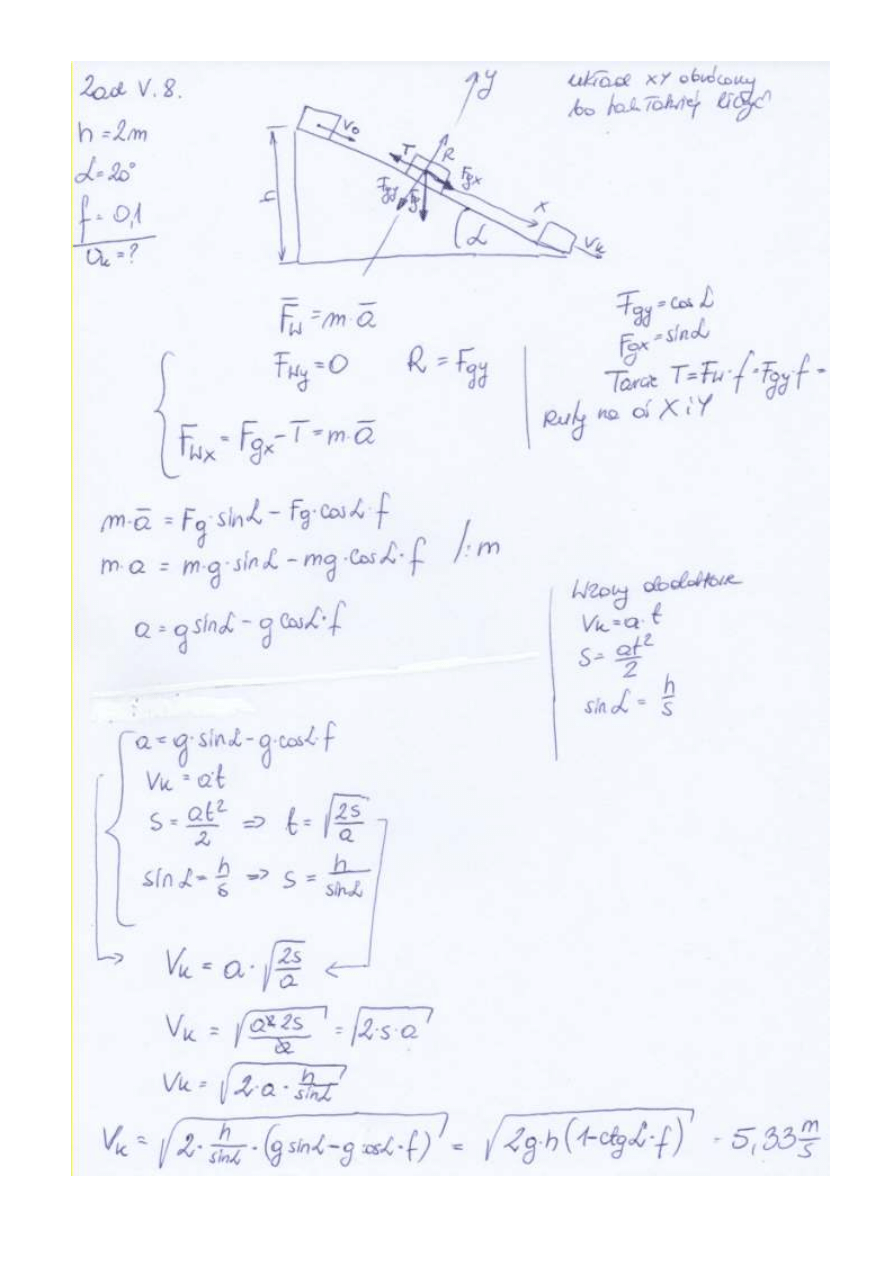 Zad V. 8.
układ XY obrócony
bo tak łatwiej liczyć
h = 2m
α = 20°
f = 0,1
Vk = ?
y
V₀
T
R
Fgx
Fgy
Fg
h
x
α
Vk
F̅w = m·a̅
Fwy = 0    R = Fgy
Fwx = F̅gx - T̅ = m·a̅
Fgy = cos α
Fgx = sin α
T = Fw·f = Fgy·f =
Rzuty na oś X i Y
m·a̅ = Fg·sinα - Fg·cosα·f
m·a = m·g·sinα - mg·cosα·f  /:m
a = g sinα - g cosα·f
Wzory dodatkowe
Vk = a·t
S = at²/2
sinα = h/s
a = g·sinα - g·cosα·f
Vk = a·t
S = at²/2 => t = √(2s/a)
sinα = h/s => S = h/sinα
Vk = a·√(2s/a)
Vk = √(a²·2s/a) = √(2·s·a)
Vk = √(2·a·h/sinα)
Vk = √(2·h/sinα·(g sinα - g cosα·f)) = √(2g·h(1-ctgα·f)) = 5,33 m/s